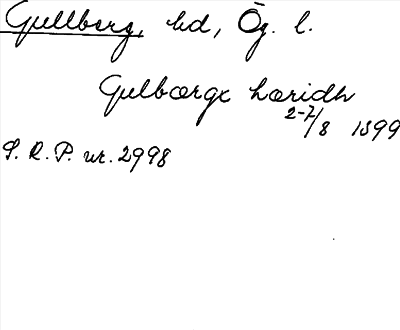 Gullberg, hd, Ög. l.
Gulbærgx hæridh
2-7/8 1399
S. R. P. nr. 2998